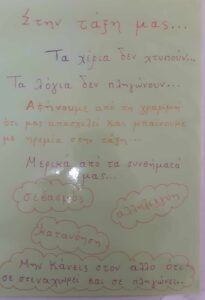 Στην τάξη μας...
Τα χέρια δεν χτυπούν...
Τα λόγια δεν πληγώνουν...
Αφήνουμε από τη γραμμή
ότι μας απασχολεί και μπαίνουμε
με ηρεμία στην τάξη...
Μερικά από τα συνθήματά
μας...
σεβασμός
αλληλεγγύη
κατανόηση
Μην κάνεις στον άλλο ότι
σε στεναχωρεί και σε πληγώνει...